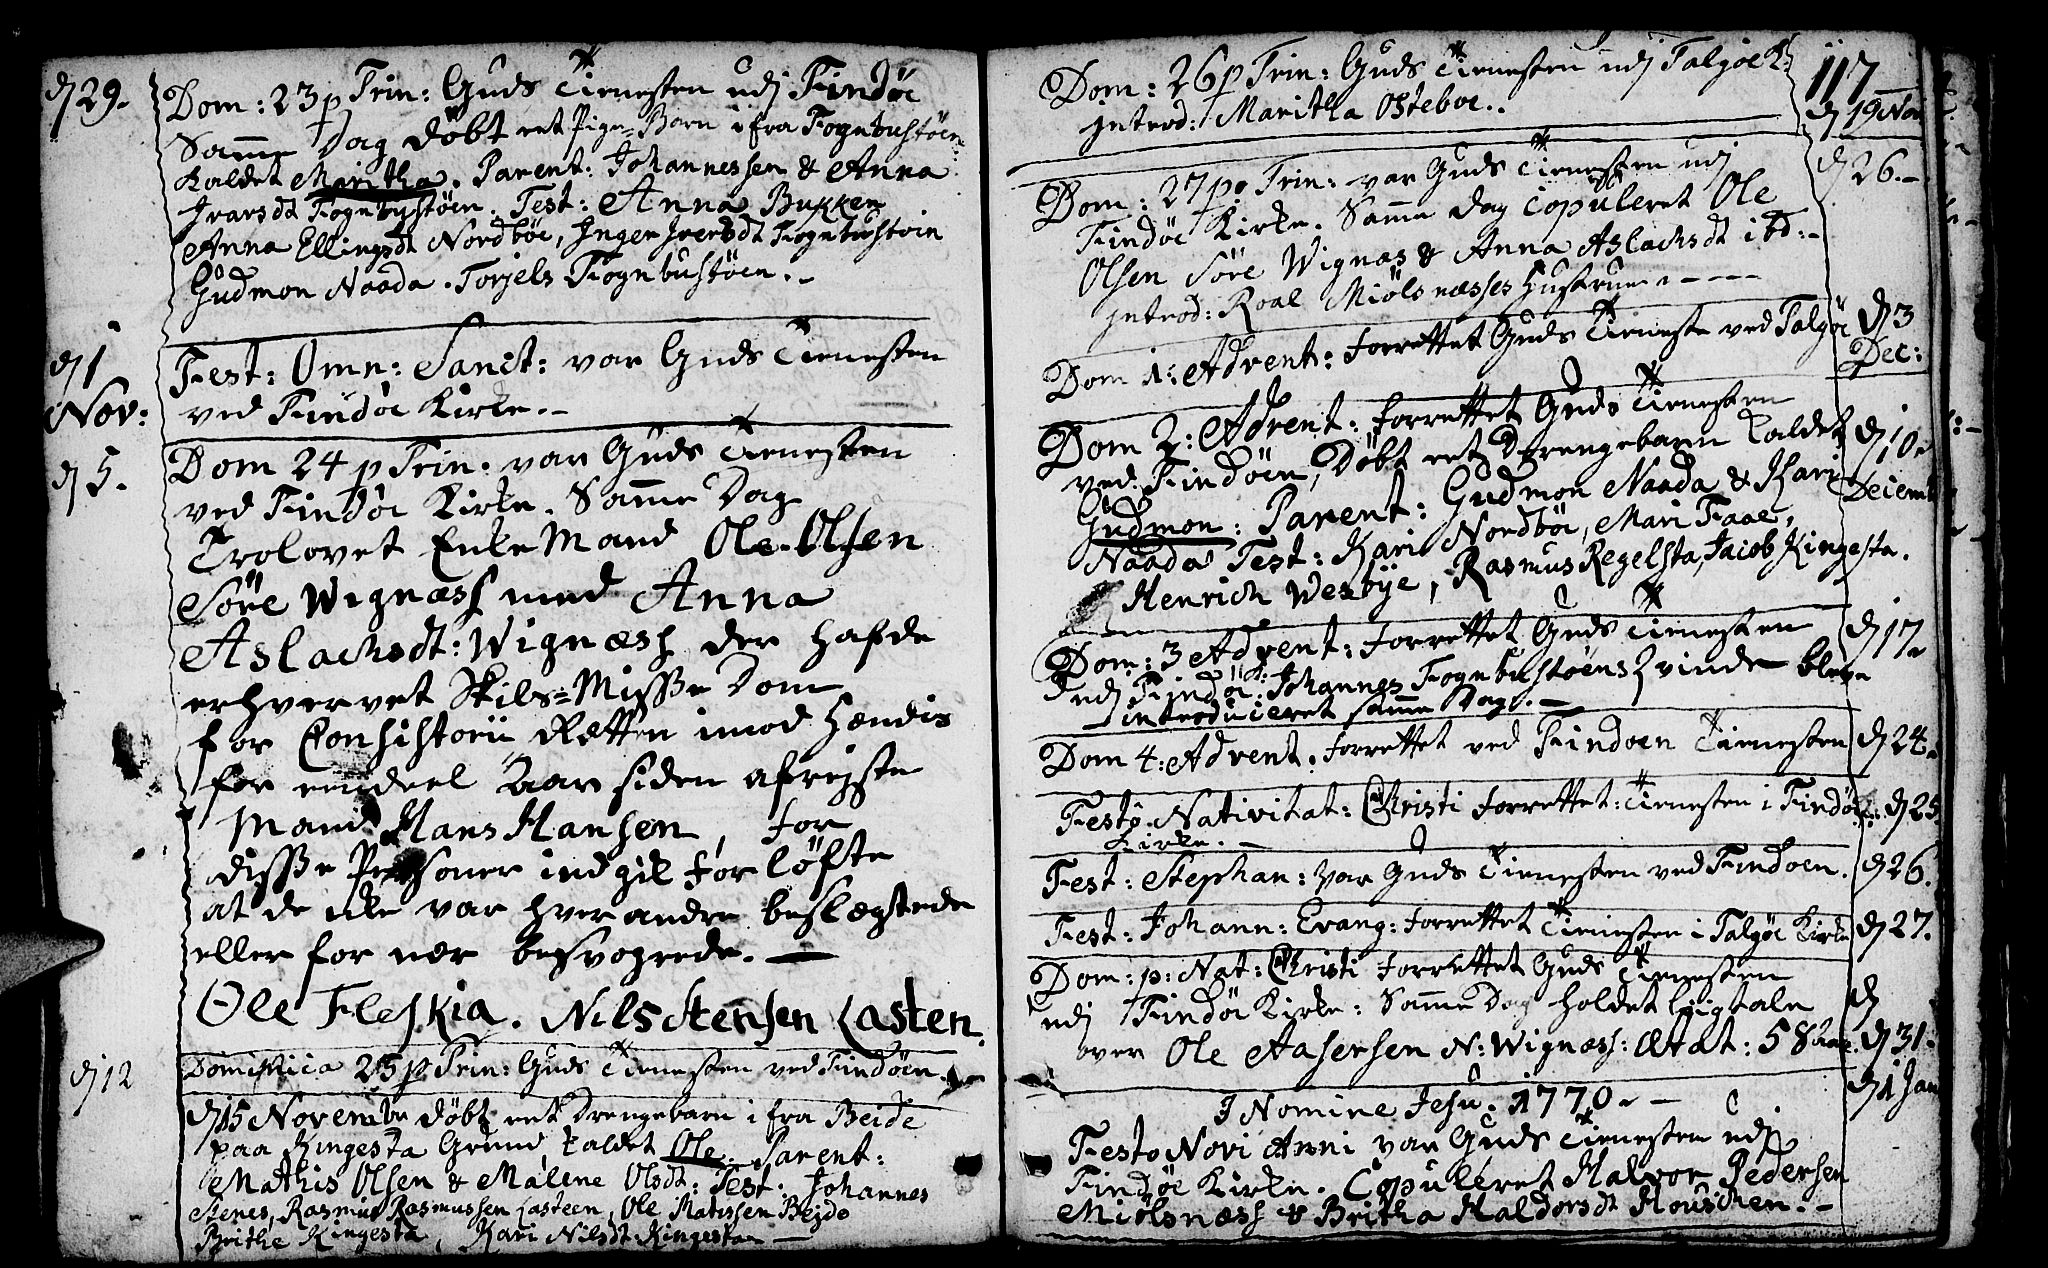 dj 29.
Dom: 23 p Trin: Guds Tienesten udj Findöe
Samme Dag döbt et Pige-Barn ifra Fognbustöen
kaldet Maritha. Parent: Johannessen & Anna
Ivarsdt Fognbustöen. Test: Anna Bukken
Anna Ellingsdt Nordböe, Inger Iversdt Fognbustöen
Gudmon Naada. Torjels Fognbustöen.
dj 1
Nov:
Fest: Omn: Sanct: var Guds Tienesten
ved Findöe Kirke.
dj 5.
Dom 24 p Trin. var Guds Tienesten
ved Findöe Kirke. Samme Dag
Trolovet Enke Mand Ole Olsen
Söre Wignæss med Anna
Aslachsdt: Wignæss der hafde
erhvervet Skils-Misse Dom
for Consistorii Retten imod hendis
for eendeel Aar siden afreyste
Mand Hans Hansen, for
disse Personer indgik for löfte
at de icke var hverandre beslægtede
eller for nær besvogrede.
Ole Fleskia. Nils Stensen Lasteen.
dj 12
Dominica 25 p Trin: Guds Tienesten ved Findöen.
dj 15 Novembr döbt et Drengebarn ifra Beide
paa Kingesta Grund, kaldet Ole. Parent:
Mathis Olsen & Malene Olsdt: Test: Johannes
Stenes, Rasmus Rasmussen Lasteen, Ole Matissen Bejde
Brithe Kingesta, Kari Nilsdt Kingesta
117
Dom: 26 p Trin: Guds Tienesten udj Talgöe K:
Introd: Maritha Osteboe.
dj 19 Nov
Dom: 27 p: Trin: var Guds Tienesten udj
dj 26.
Findöe Kirke. Samme dag Copuleret Ole
Olsen Söre Wignæs & Anna Aslachsdt ibd:
Introd: Roal Miölsnæsses Hustrue
Dom 1: Advent: forrettet Guds Tieneste ved Talgöe
dj 3
Dec:
Dom 2: Advent: forrettet Guds Tienesten
ved Findöen, Döbt et Drengebarn kaldet
dj 10
Decemb
Gudmon: Parent: Gudmon Naada & Kari
Naada Test: Kari Nordböe, Mari Faae,
Henrich Wesbye, Rasmus Regelsta, Jacob Kingesta.
Dom: 3 Advent: forrettet Guds Tienesten
dj 17
udj Findöe: Johannes Fognbustöens Qvinde bleve
introduceret samme Dag.
Dom 4: Advent. forrettet ved Findoen Tienesten
dj 24
Festo Nativitat: Christi forrettet: Tienesten i Findöe
dj 25
Kirke.
Fest: Stephan: var Guds Tienesten ved Findoen.
dj 26.
Fest: Johann: Evang: forrettet Tienesten i Talgöe Kirke
dj 27.
Dom: p: Nat: Christi forrettet Guds Tienesten
udj Findöe Kirke: Samme Dag holdet liigtale
dj
over Ole Aasersen N: Wignæss: Ætat: 58 Aar.
dj 31.
I Nomine Jesu. 1770.
dj 1 Jan
Festo Novi Anni var Guds Tienesten udj
Findöe Kirke. Copuleret Halvor Pedersen
Miölsnæss & Britha Haldorsdt Houschen.